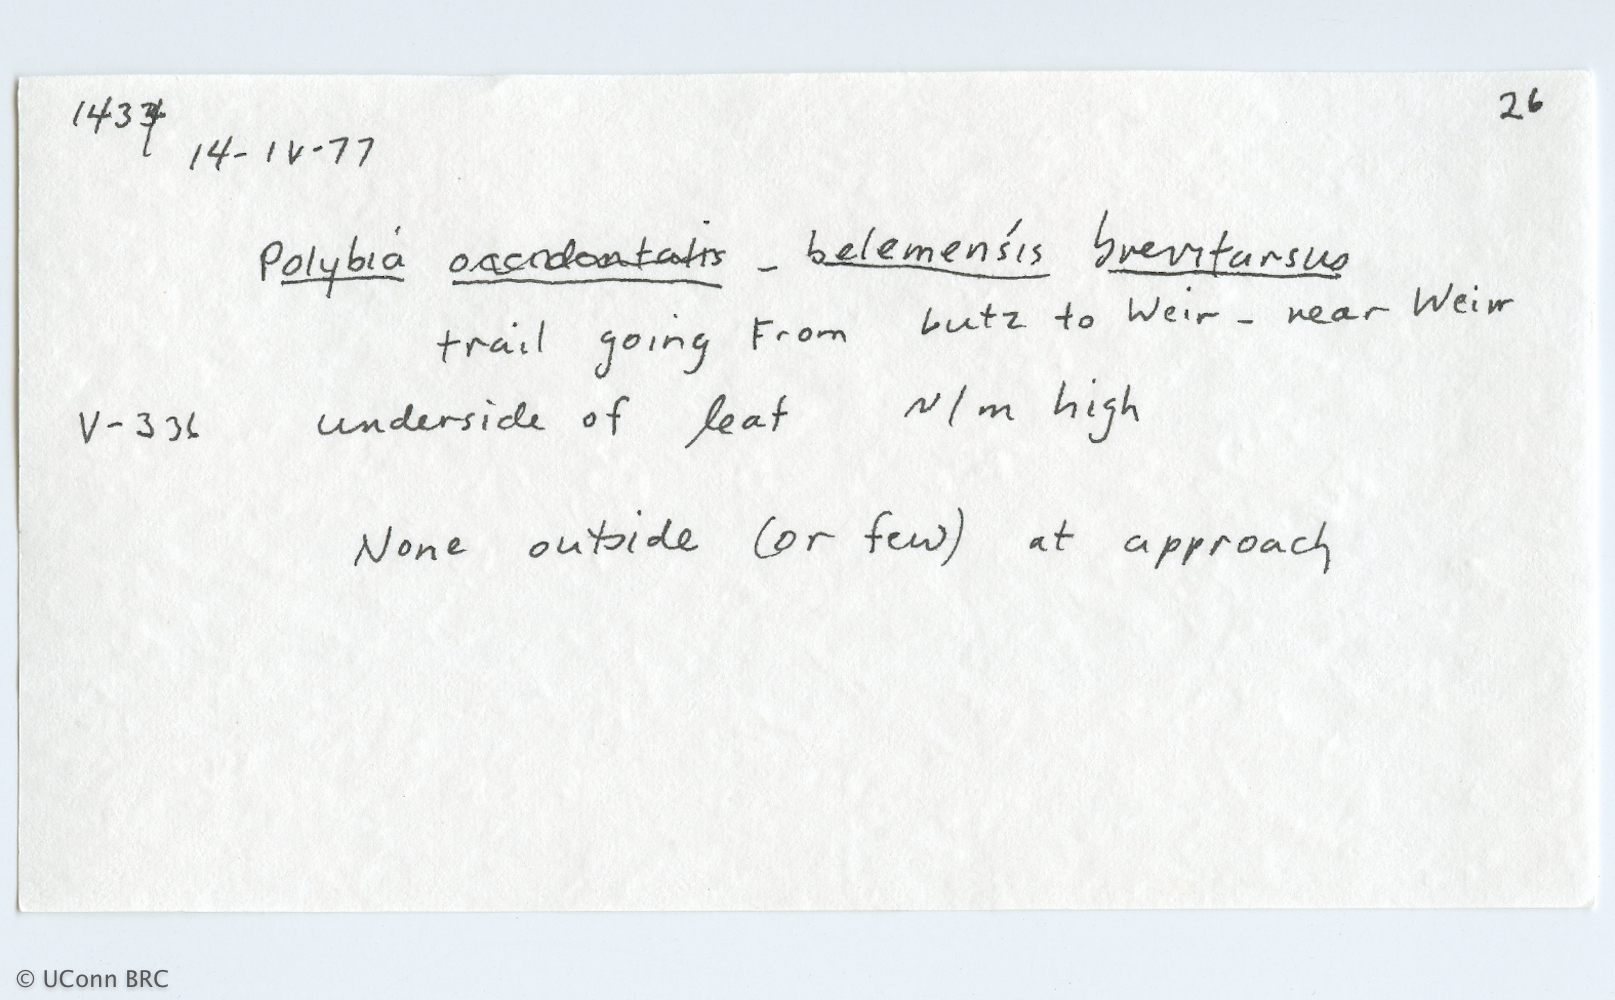 26
14-IV-77
Polybia occidentalis - belemensis brevitarsus
trail going From butz to Weir - near Weir
V-336 underside of leaf ~1m high
None outside (or few) at approach
© UConn BRC